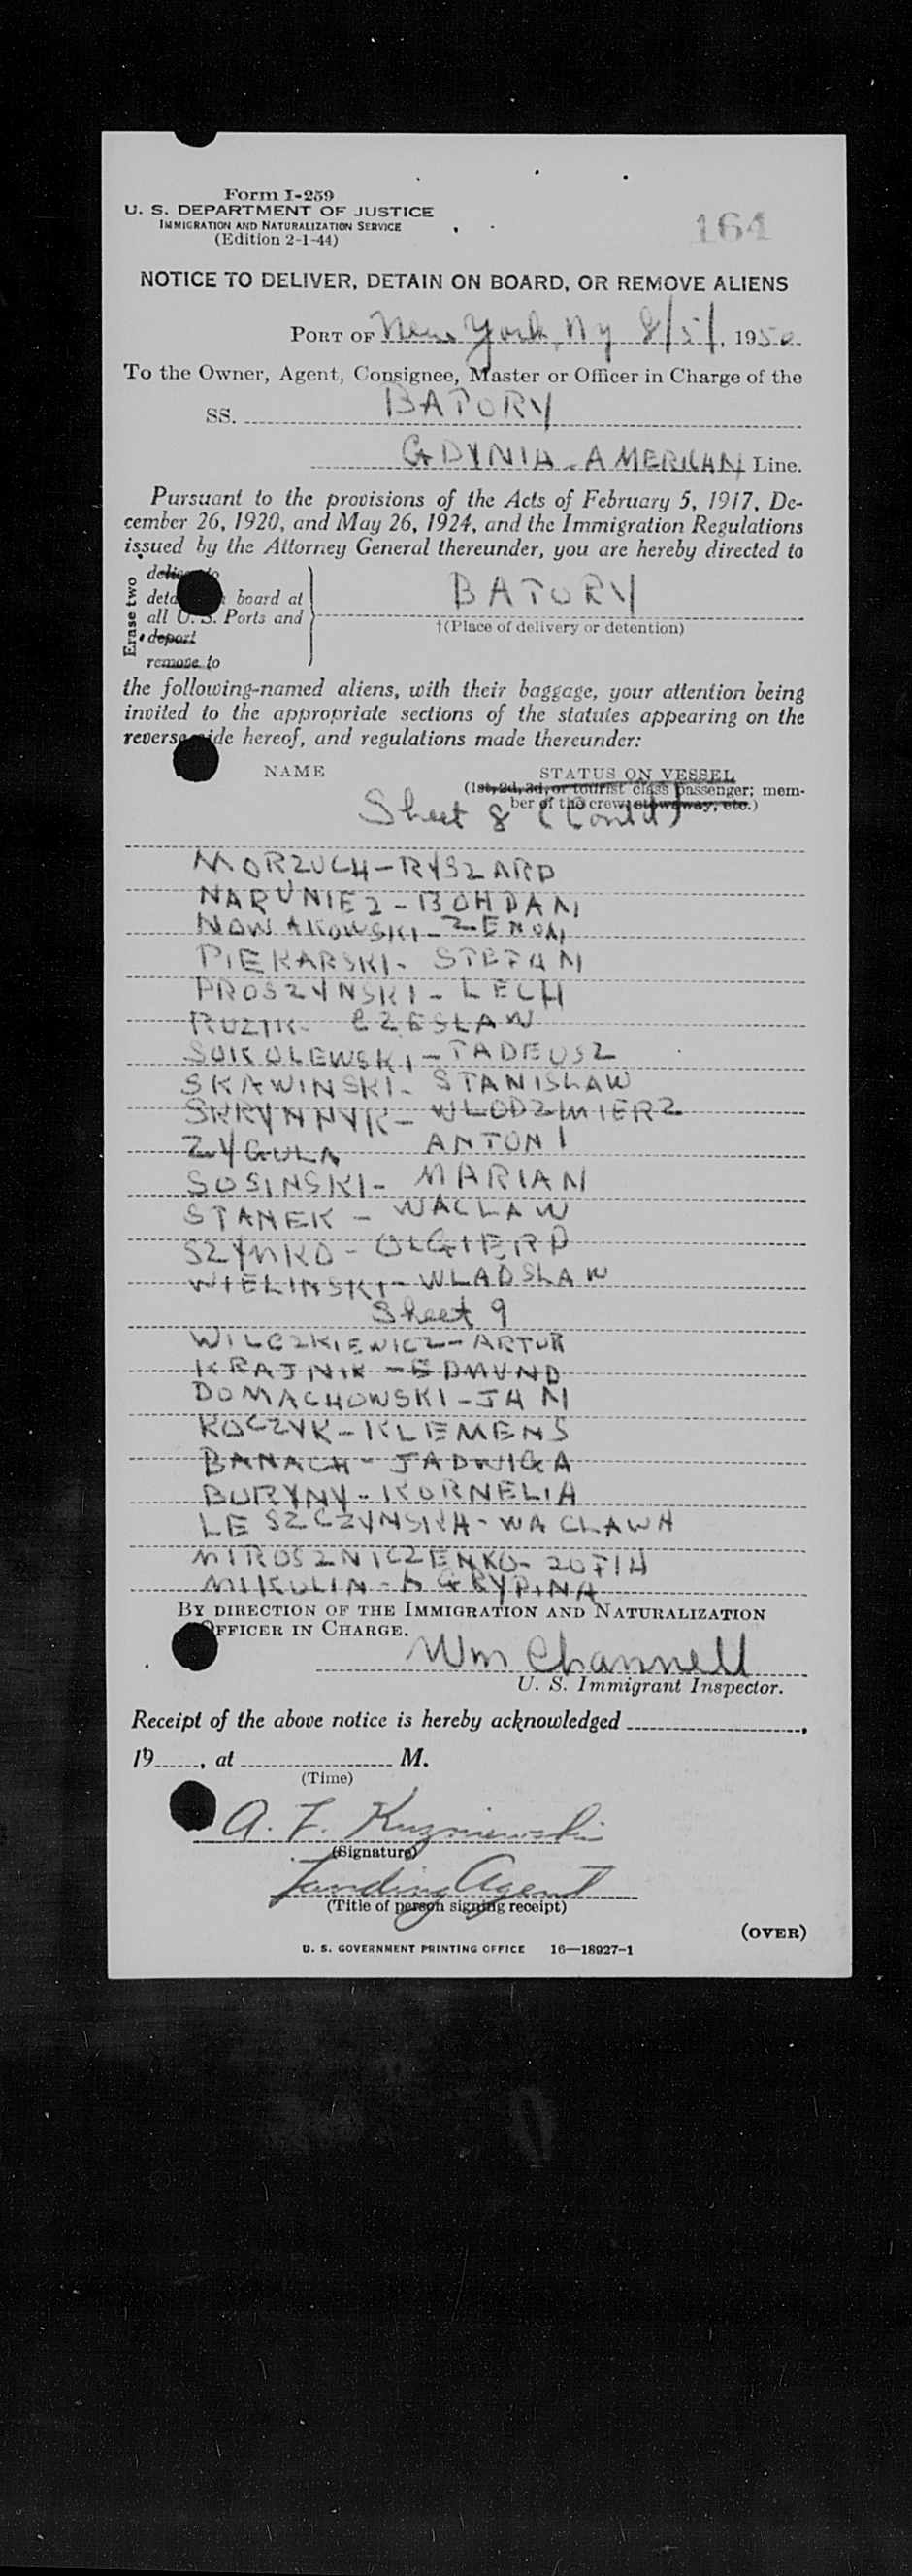 Form I-259
U. S. DEPARTMENT OF JUSTICE
IMMIGRATION AND NATURALIZATION SERVICE
(Edition 2-1-44)
164
NOTICE TO DELIVER, DETAIN ON BOARD, OR REMOVE ALIENS
PORT OF New York, Ny 8/5/, 1950
To the Owner, Agent, Consignee, Master or Officer in Charge of the
SS. BATORY
GDYNIA-AMERICAN Line.
Pursuant to the provisions of the Acts of February 5, 1917, De-
cember 26, 1920, and May 26, 1924, and the Immigration Regulations
issued by the Attorney General thereunder, you are hereby directed to
Erase two
deliver to
board at
all U. S. Ports and
deport
remove to
BATORY
†(Place of delivery or detention)
the following-named aliens, with their baggage, your attention being
invited to the appropriate sections of the statutes appearing on the
reverse side hereof, and regulations made thereunder:
NAME
STATUS ON VESSEL
(1st, 2d, 3d, or tourist class passenger; mem-
ber of the crew, stowaway, etc.)
Sheet 8 (Contd)
MORZUCH-RYSZARD
NARUNIEZ-BOHDAN
NOWAKOWSKI-ZENON
PIEKARSKI-STEFAN
PROSZYNSKI-LECH
RUZIK-CZESLAW
SOKOLEWSKI-TADEUSZ
SKAWINSKI-STANISLAW
SKRYNNYK-WLODZIMIERZ
ZYGULA ANTONI
SOSINSKI-MARIAN
STANEK-WACLAW
SZYMKO-OLGIERD
WIELINSKI-WLADSLAW
Sheet 9
WILCZKIEWICZ-ARTUR
KRAJNIK-EDMUND
DOMACHOWSKI-JAN
KOCZYK-KLEMENS
BANACH-JADWIGA
BURYNY-KORNELIA
LESZCZYNSKA-WACLAWA
MIROSZNICZENKO-ZOFIA
MIKULIN-AGRYPINA
BY DIRECTION OF THE IMMIGRATION AND NATURALIZATION
OFFICER IN CHARGE.
Wm Channell
U. S. Immigrant Inspector.
Receipt of the above notice is hereby acknowledged
19, at M.
(Time)
A. F. Kuzniewski
(Signature)
Landing Agent
(Title of person signing receipt)
(OVER)
U. S. GOVERNMENT PRINTING OFFICE 16—18927-1